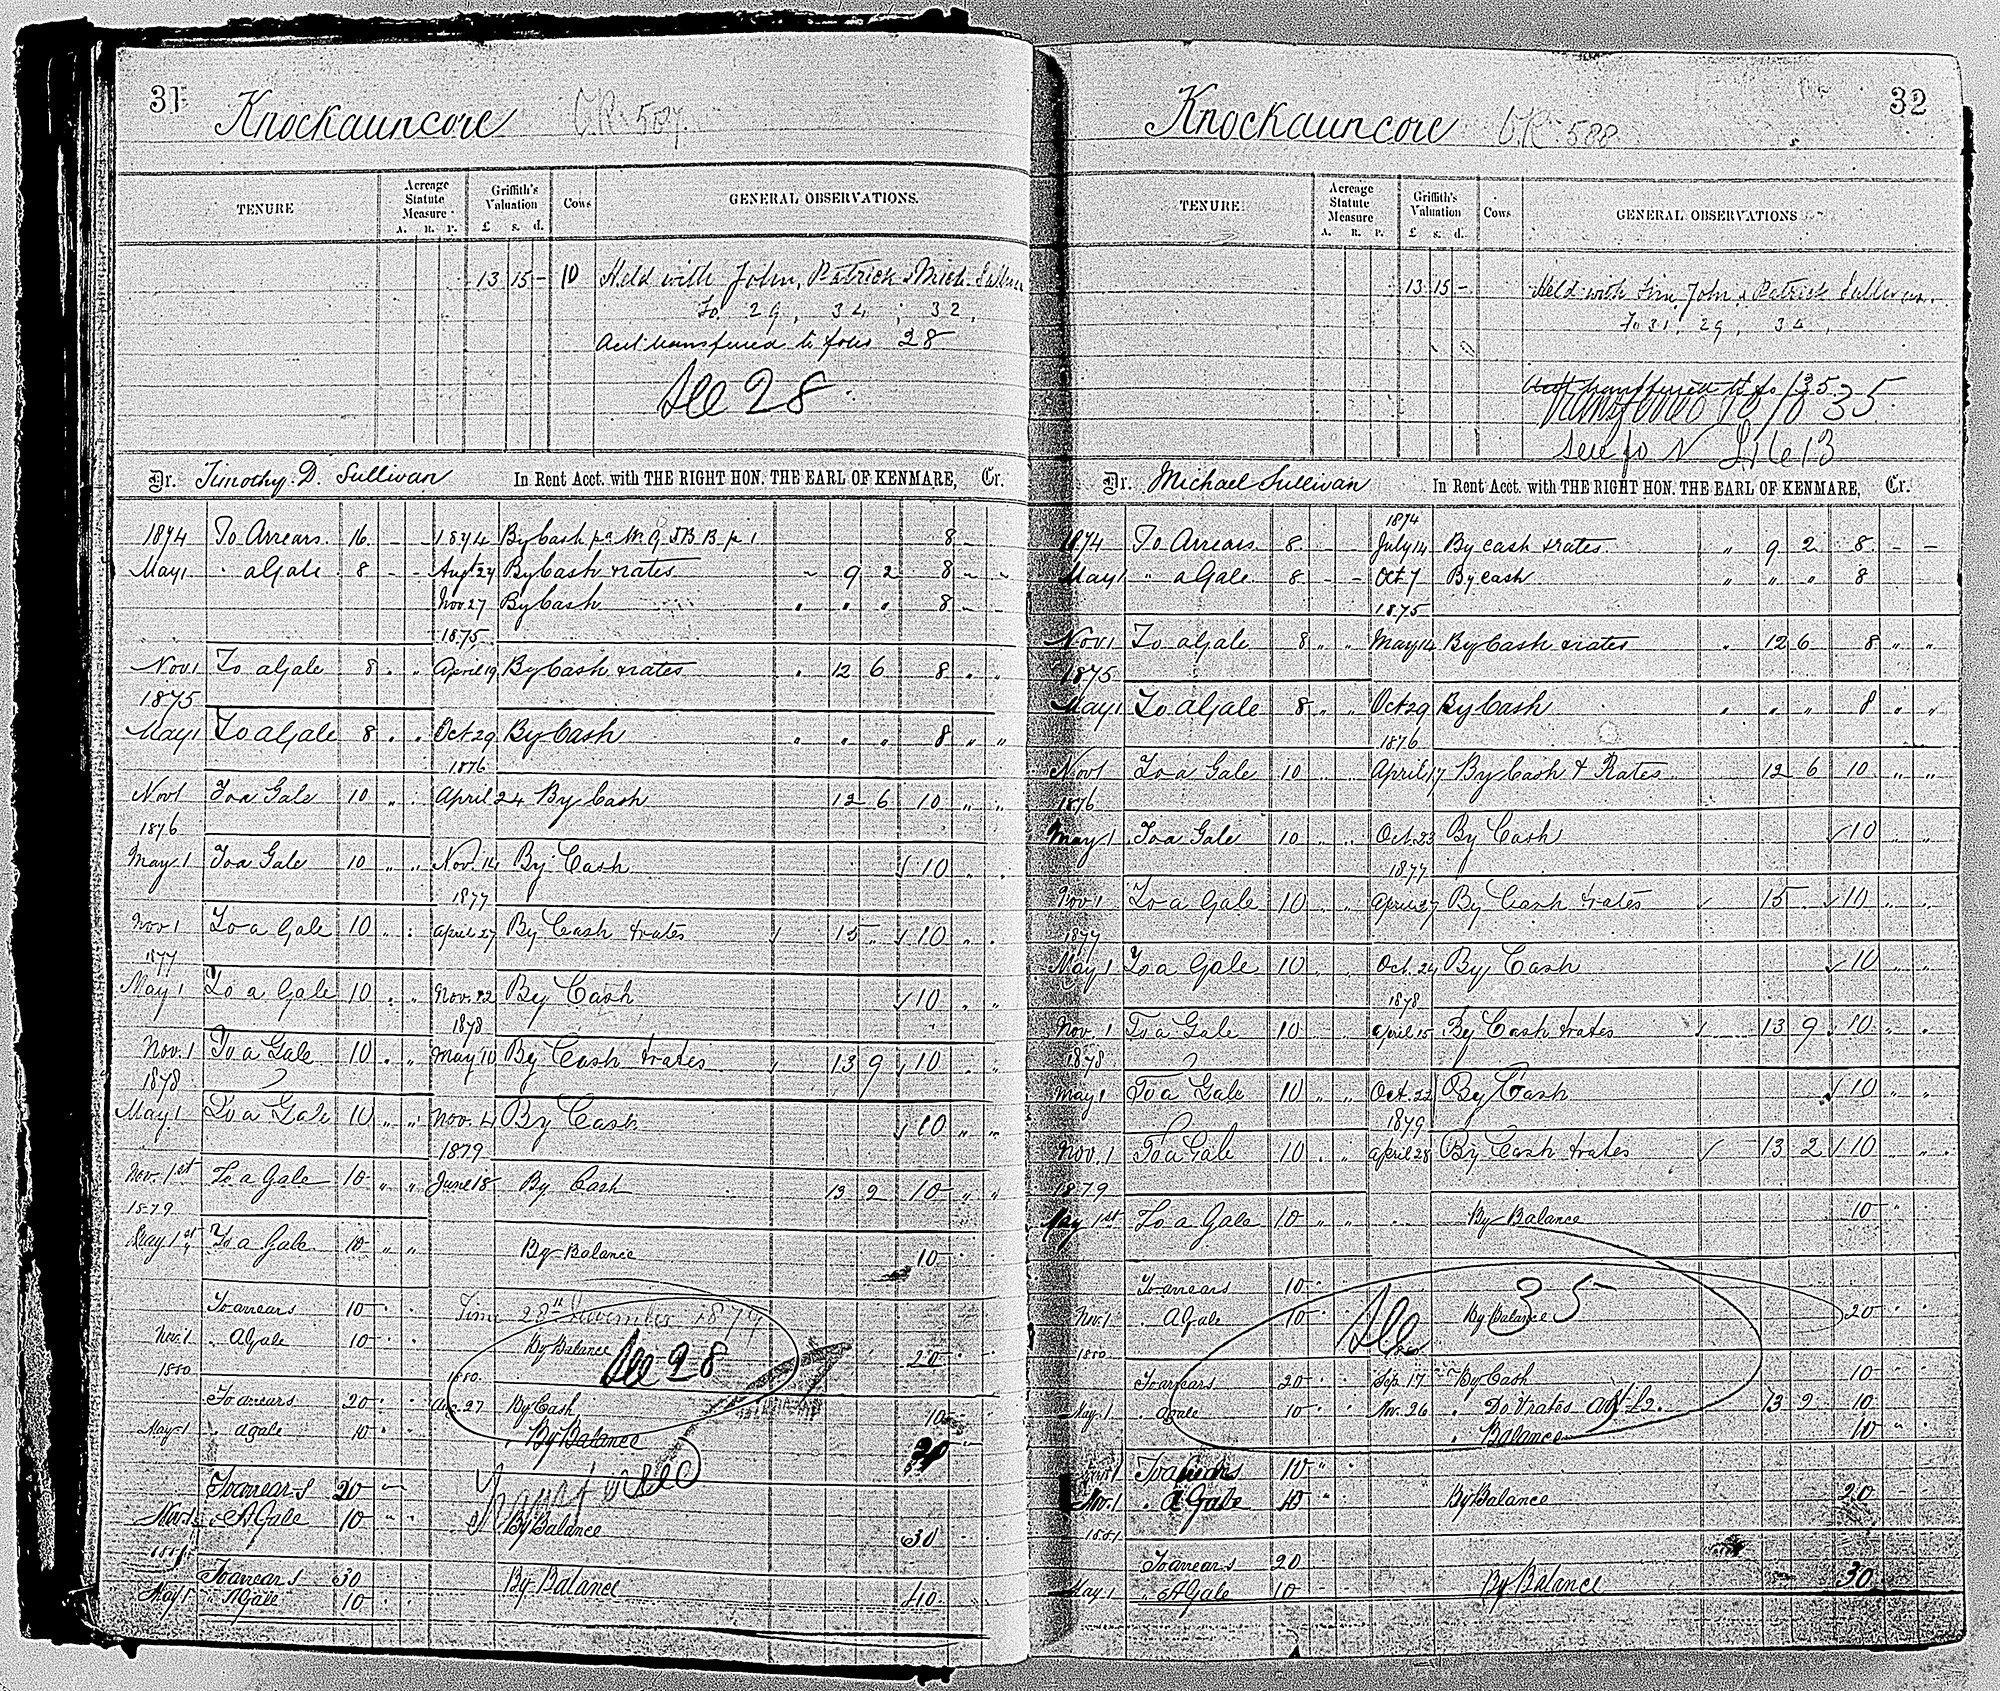 31
Knockauncore O.R. 587
TENURE Acreage Statute Measure A. R. P. Griffith's Valuation £ s. d. Cows GENERAL OBSERVATIONS.
13 15 - 10 Held with John, Patrick & Mich. Sullivan
Fo. 29, 34, 32,
Acct transferred to folio 28
See 28
Dr. Timothy D. Sullivan In Rent Acct. with THE RIGHT HON. THE EARL OF KENMARE, Cr.
1874 To Arrears 16 - - 1874 By Cash 8 -
May 1 " a Gale 8 - - Augt 24 By Cash & rates " 9 2 8 " "
Nov. 27 By Cash " " " 8 - -
1875
Nov 1 To a Gale 8 " " April 19 By Cash & rates " 12 6 8 " "
1875
May 1 To a Gale 8 " " Oct 29 By Cash " " " 8 " "
1876
Nov 1 To a Gale 10 " " April 24 By Cash 12 6 10 " "
1876
May 1 To a Gale 10 " " Nov. 14 By Cash 10 " "
1877
Nov 1 To a Gale 10 " " April 27 By Cash & rates 15 " 10 " "
1877
May 1 To a Gale 10 " " Nov. 22 By Cash 10 " "
1878
Nov. 1 To a Gale 10 " " May 10 By Cash & rates 13 9 10 " "
1878
May 1 To a Gale 10 " " Nov. 4 By Cash 10 " "
1879
Nov. 1st To a Gale 10 " " June 18 By Cash 13 2 10 " "
1879
May 1st To a Gale 10 " " By Balance 10 "
To arrears 10 " " Time 28th November 1879
Nov. 1 " A Gale 10 " " By Balance 20 "
See 28
1880 1880
To arrears 20 " " 27 By Cash 10
May 1 " a gale 10 " " " By Balance 20
To arrears 20 " "
Nov. 1 " A Gale 10 " " By Balance 30
1881
To arrears 30
May 1 " A Gale 10 By Balance 40
32
Knockauncore O.R. 588
TENURE. Acreage Statute Measure A. R. P. Griffith's Valuation £ s. d. Cows GENERAL OBSERVATIONS
13 15 - Held with Tim, John & Patrick Sullivan.
Fo 31, 29, 34,
Acct transferred to fo 35
Transferred to fo 35
see fo
Dr. Michael Sullivan In Rent Acct. with THE RIGHT HON. THE EARL OF KENMARE, Cr.
1874
1874 To Arrears 8 - - July 14 By cash & rates " 9 2 8 - -
May 1 " a Gale 8 - - Oct. 7 By cash " " " 8
1875
Nov 1 To a Gale 8 " " May 14 By Cash & rates " 12 6 8 " "
1875
May 1 To a Gale 8 " " Oct 29 By Cash " " " 8 " "
1876
Nov 1 To a Gale 10 " " April 17 By Cash & Rates 12 6 10 " "
1876
May 1 To a Gale 10 " " Oct. 23 By Cash 10 " "
1877
Nov 1 To a Gale 10 " " April 27 By Cash & rates 15 " 10 " "
1877
May 1 To a Gale 10 " " Oct. 24 By Cash 10 " "
1878
Nov. 1 To a Gale 10 " " April 15 By Cash & rates 13 9 10 " "
1878
May 1 To a Gale 10 " " Oct. 22 By Cash 10 " "
1879
Nov. 1 To a Gale 10 " " April 28 By Cash & rates 13 2 10 " "
1879
May 1st To a Gale 10 " " By Balance 10 "
To arrears 10 "
Nov. 1 " A Gale 10 " " By Balance 20 " "
See 35
1880
To arrears 20 " Sep. 17 By Cash 10 " "
May 1 " a gale 10 " " Nov. 26 " Do & rates 13 9 10 " "
" Balance 10 " "
To arrears 10 " "
Nov. 1 " a Gale 10 " By Balance 20
1881
To arrears 20
May 1 " A Gale 10 - - By Balance 30